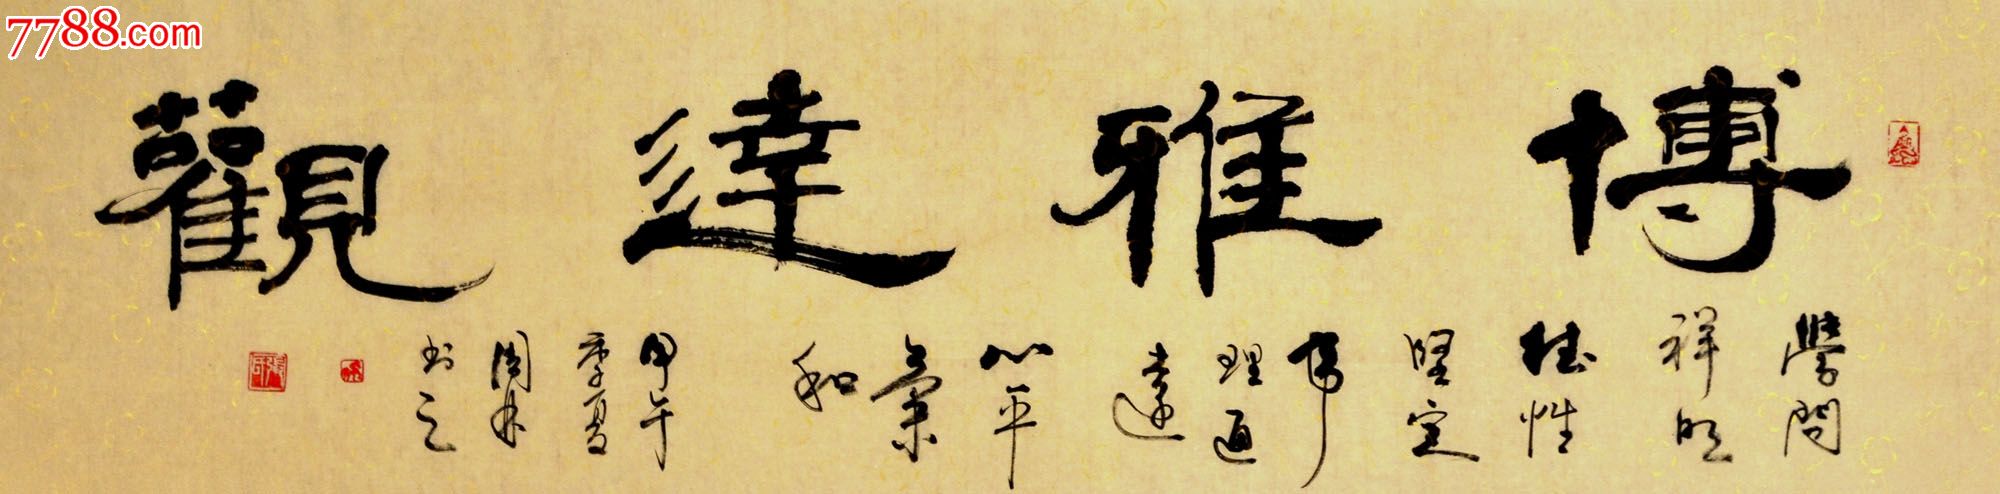 7788.com
博雅達觀
學問
祥明
德性
堅定
事
理通
達
心平
氣
和
甲午
季夏
书之